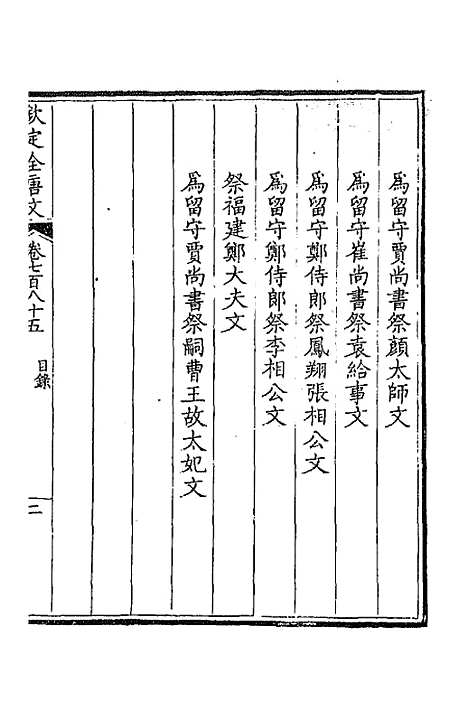 爲留守賈尚書祭顏太師文
爲留守崔尚書祭袁給事文
爲留守鄭侍郎祭鳳翔張相公文
爲留守鄭侍郎祭李相公文
祭福建鄭大夫文
爲留守賈尚書祭嗣曹王故太妃文
欽定全唐文
卷七百八十五
目錄
二